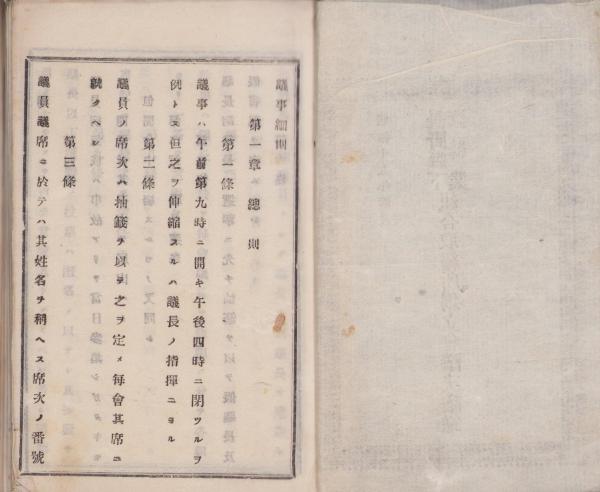 議事細則
第一章 總則
第一條
議事ハ午前第九時ニ開キ午後四時ニ閉ツルヲ
例トス但之ヲ伸縮スルハ議長ノ指揮ニヨル
第二條
議員ノ席次ハ抽籤ヲ以テ之ヲ定メ毎會其席ニ
就クヘシ
第三條
議員議席ニ於テハ其姓名ヲ稱ヘス席次ノ番號